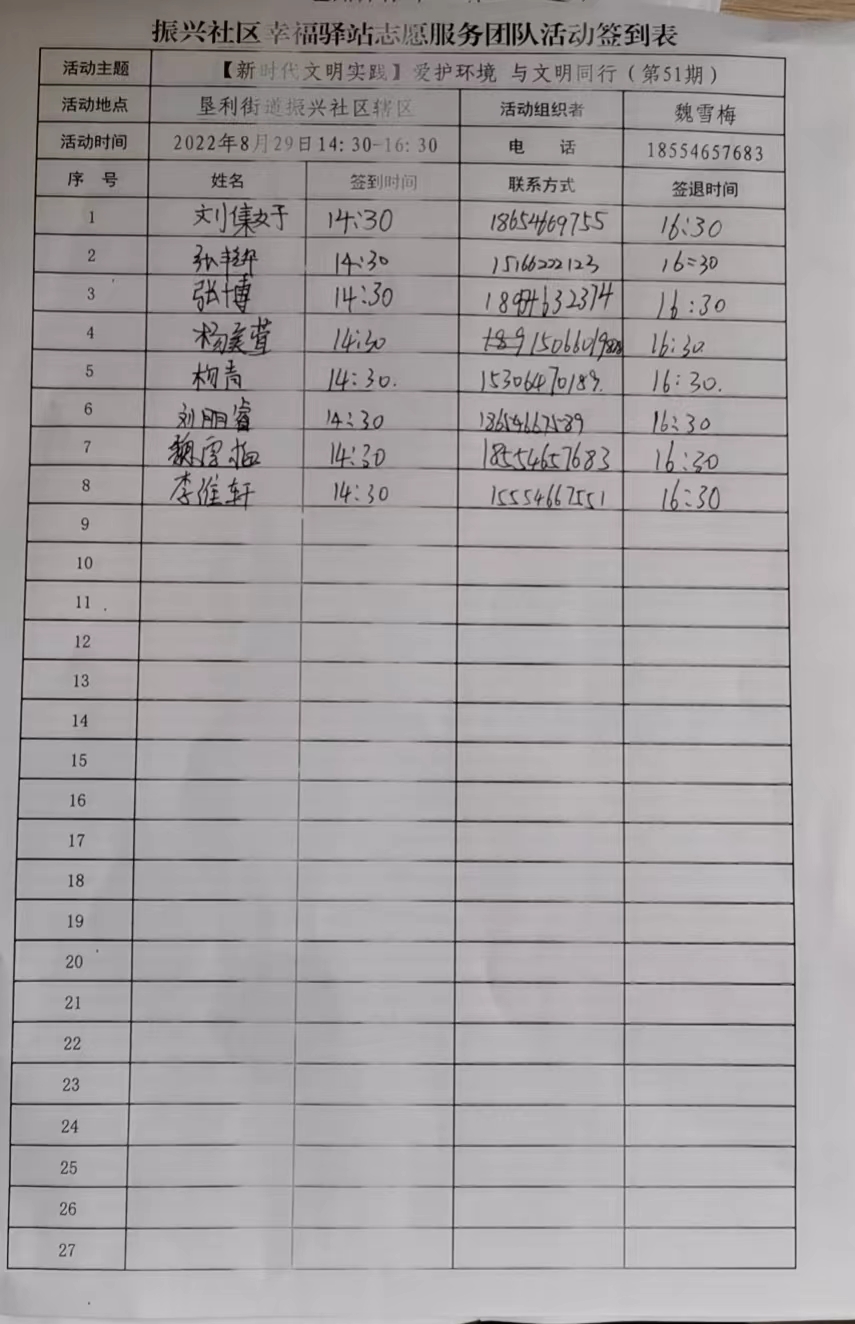 振兴社区幸福驿站志愿服务团队活动签到表
活动主题 【新时代文明实践】爱护环境 与文明同行（第51期）
活动地点 垦利街道振兴社区辖区 活动组织者 魏雪梅
活动时间 2022年8月29日14:30-16:30 电 话 18554657683
序 号 姓名 签到时间 联系方式 签退时间
1 刘集好 14:30 18654669755 16:30
2 张 14:30 15166222123 16:30
3 张博 14:30 16:30
4 杨 萱 14:30 16:30
5 杨青 14:30. 15306470189. 16:30.
6 刘丽睿 14:30 18654667589 16:30
7 魏雪梅 14:30 18554657683 16:30
8 李维轩 14:30 15554667551 16:30
9
10
11
12
13
14
15
16
17
18
19
20
21
22
23
24
25
26
27